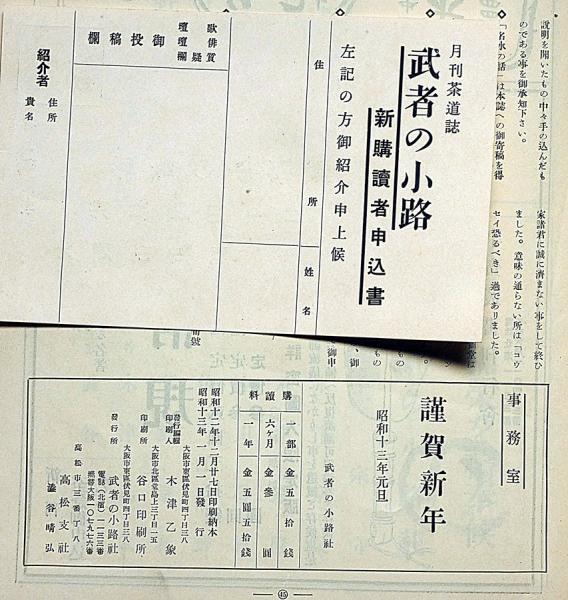 説明を聞いたもの中々手の込んだも
のである事を御承知下さい。
「名水の話」は本誌への御寄稿を得
月刊茶道誌
武者の小路
新購讀者申込書
左記の方御紹介申上候
住所
姓名
歌壇
俳壇
質疑欄
御投稿欄
紹介者
住所
貴名
家諸君に誠に済まない事をして終ひ
ました。意味の通らない所は「コウ
セイ恐るべき」過でありました。
事務室
謹賀新年
昭和十三年元旦
武者の小路社
購讀料
一部 金五拾錢
六ヶ月 金參圓
一年 金五圓五拾錢
昭和十二年十二月廿七日印刷納本
昭和十三年一月一日發行
大阪市東區伏見町四丁目三八
發行編輯印刷人 木津乙象
大阪市北區堂島上三丁目一五
印刷所 谷口印刷所
大阪市東區伏見町四丁目三八
發行所 武者の小路社
電話(北濱)二一三三番
振替大阪一〇七九七六番
高松市二番丁八
高松支社
澁谷晴弘
45